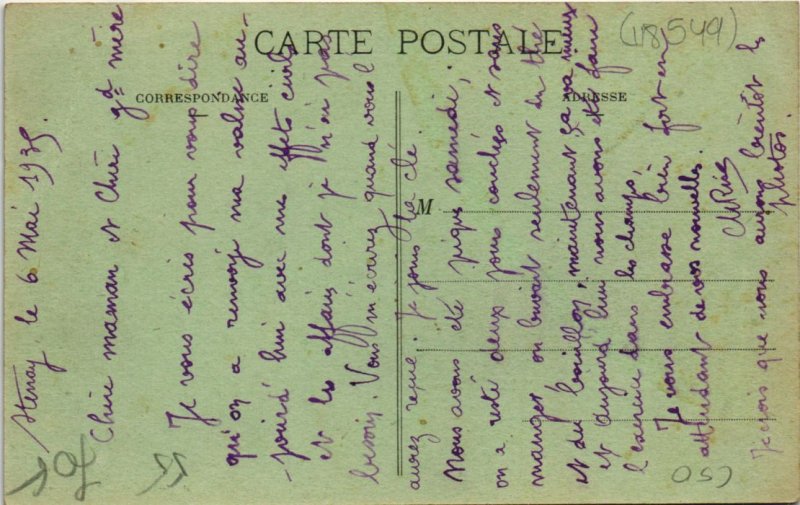 CARTE POSTALE
CORRESPONDANCE
ADRESSE
M
(18,549)
Stenay le 6 Mai 1935.
Chère maman et Chère gd mère
Je vous écris pour vous dire
qu'on a renvoyé ma valise au-
-jourd'hui avec mes effets civils
et les affaires dont je n'en pas
besoin. Vous m'écrirez quand vous l'
aurez reçue. Je joins la clé.
Nous avons été piqués samedi;
on a resté deux jours couchés et sans
manger on buvait seulement du thé
et du bouillon; maintenant ça va mieux
et aujourd'hui nous avons été faire
l'exercice dans les champs.
Je vous embrasse bien fort en
attendant de vos nouvelles.
Je crois que nous aurons bientôt les
photos.
C50